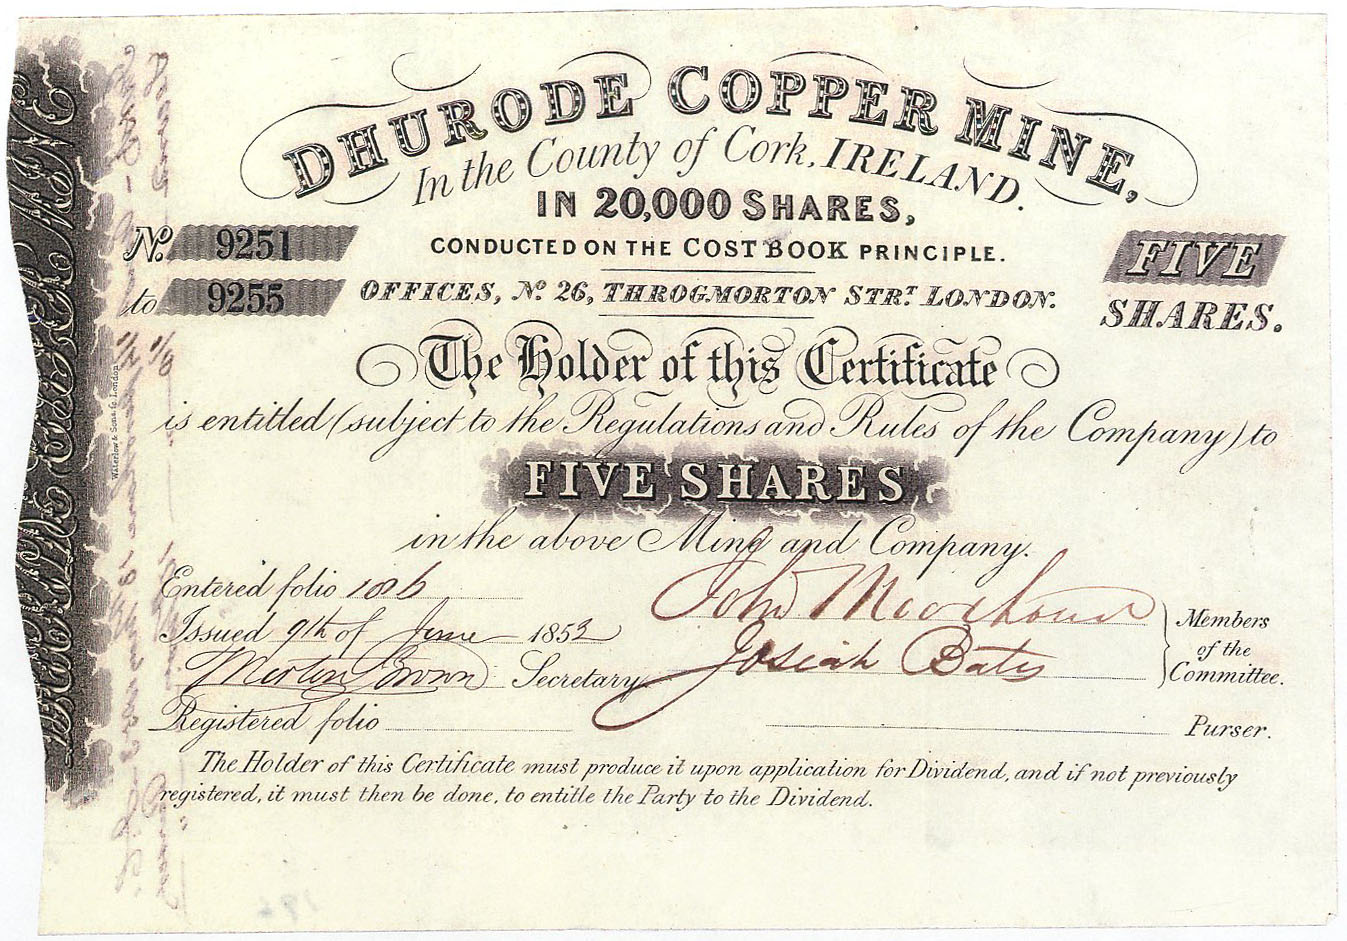 DHURODE COPPER MINE,
In the County of Cork, IRELAND.
IN 20,000 SHARES,
CONDUCTED ON THE COST BOOK PRINCIPLE.
OFFICES, No. 26, THROGMORTON STRT. LONDON.
No. 9251
to 9255
FIVE
SHARES.
The Holder of this Certificate
is entitled (subject to the Regulations and Rules of the Company) to
FIVE SHARES
in the above Mine and Company.
Entered folio 186
Issued 9th of June 1852
Secretary
Registered folio
John
Josiah Bates
Members
of the
Committee.
Purser.
The Holder of this Certificate must produce it upon application for Dividend, and if not previously
registered, it must then be done, to entitle the Party to the Dividend.
Waterlow & Sons, London